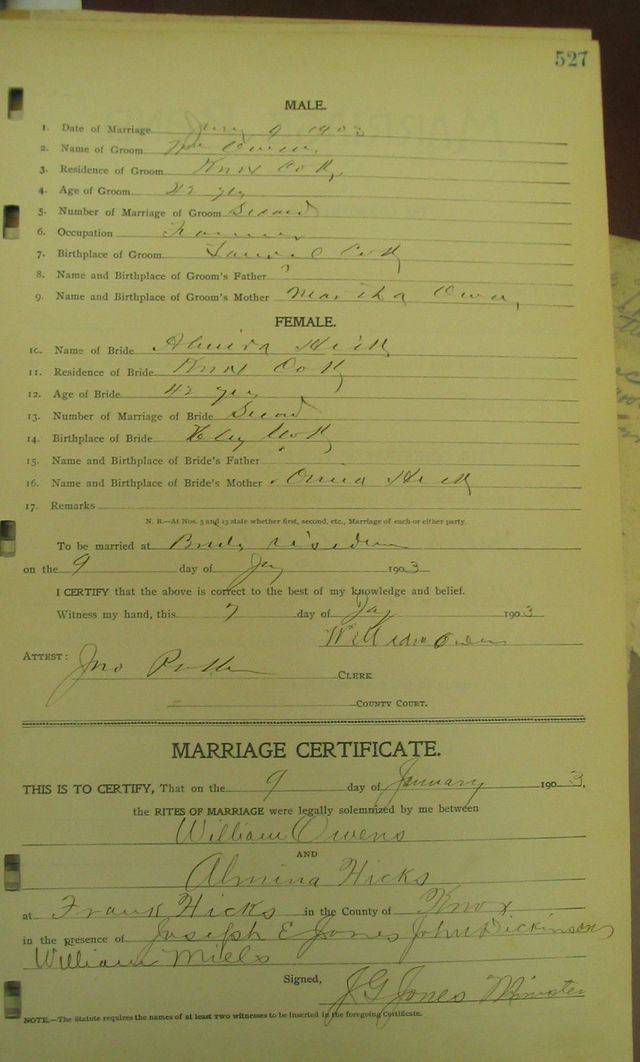 527
MALE.
1. Date of Marriage Jany 9 1903
2. Name of Groom Wm Owens
3. Residence of Groom Knox Co Ky
4. Age of Groom 42 yrs
5. Number of Marriage of Groom Second
6. Occupation Farmer
7. Birthplace of Groom Laurel Co Ky
8. Name and Birthplace of Groom's Father ?
9. Name and Birthplace of Groom's Mother Martha Owens
FEMALE.
10. Name of Bride Hicks
11. Residence of Bride Knox Co Ky
12. Age of Bride 42 yrs
13. Number of Marriage of Bride Second
14. Birthplace of Bride Clay Co Ky
15. Name and Birthplace of Bride's Father
16. Name and Birthplace of Bride's Mother
17. Remarks
N. B.—At Nos. 5 and 13 state whether first, second, etc., Marriage of each or either party.
To be married at Brides residence
on the 9 day of Jany 1903
I CERTIFY that the above is correct to the best of my knowledge and belief.
Witness my hand, this 7 day of Jany 1903
William Owens
ATTEST: Jno CLERK
COUNTY COURT.
MARRIAGE CERTIFICATE.
THIS IS TO CERTIFY, That on the 9 day of January 1903,
the RITES OF MARRIAGE were legally solemnized by me between
William Owens
AND
Almina Hicks
at Frank Hicks in the County of Knox
in the presence of Joseph E Jones John Dickinson
William Miels
Signed, J G Jones Minister
NOTE.—The Statute requires the names of at least two witnesses to be inserted in the foregoing Certificate.